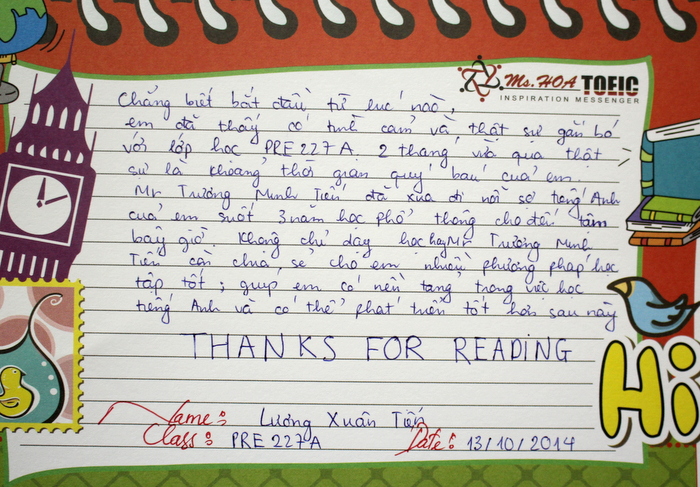 Ms. HOA TOEIC
INSPIRATION MESSENGER
Chẳng biết bắt đầu từ lúc nào,
em đã thấy có tình cảm và thật sự gắn bó
với lớp học PRE 227A. 2 tháng vừa qua thật
sự là khoảng thời gian quý báu của em.
Mr Trương Minh Tiến đã xua đi nỗi sợ tiếng Anh
của em suốt 3 năm học phổ thông cho đến tâm
bây giờ. Không chỉ dạy học hay Mr Trương Minh
Tiến còn chia sẻ cho em nhiều phương pháp học
tập tốt; giúp em có nền tảng trong việc học
tiếng Anh và có thể phát triển tốt hơn sau này
THANKS FOR READING
Name: Lương Xuân Tiến
Class: PRE 227A Date: 13/10/2014
Hi